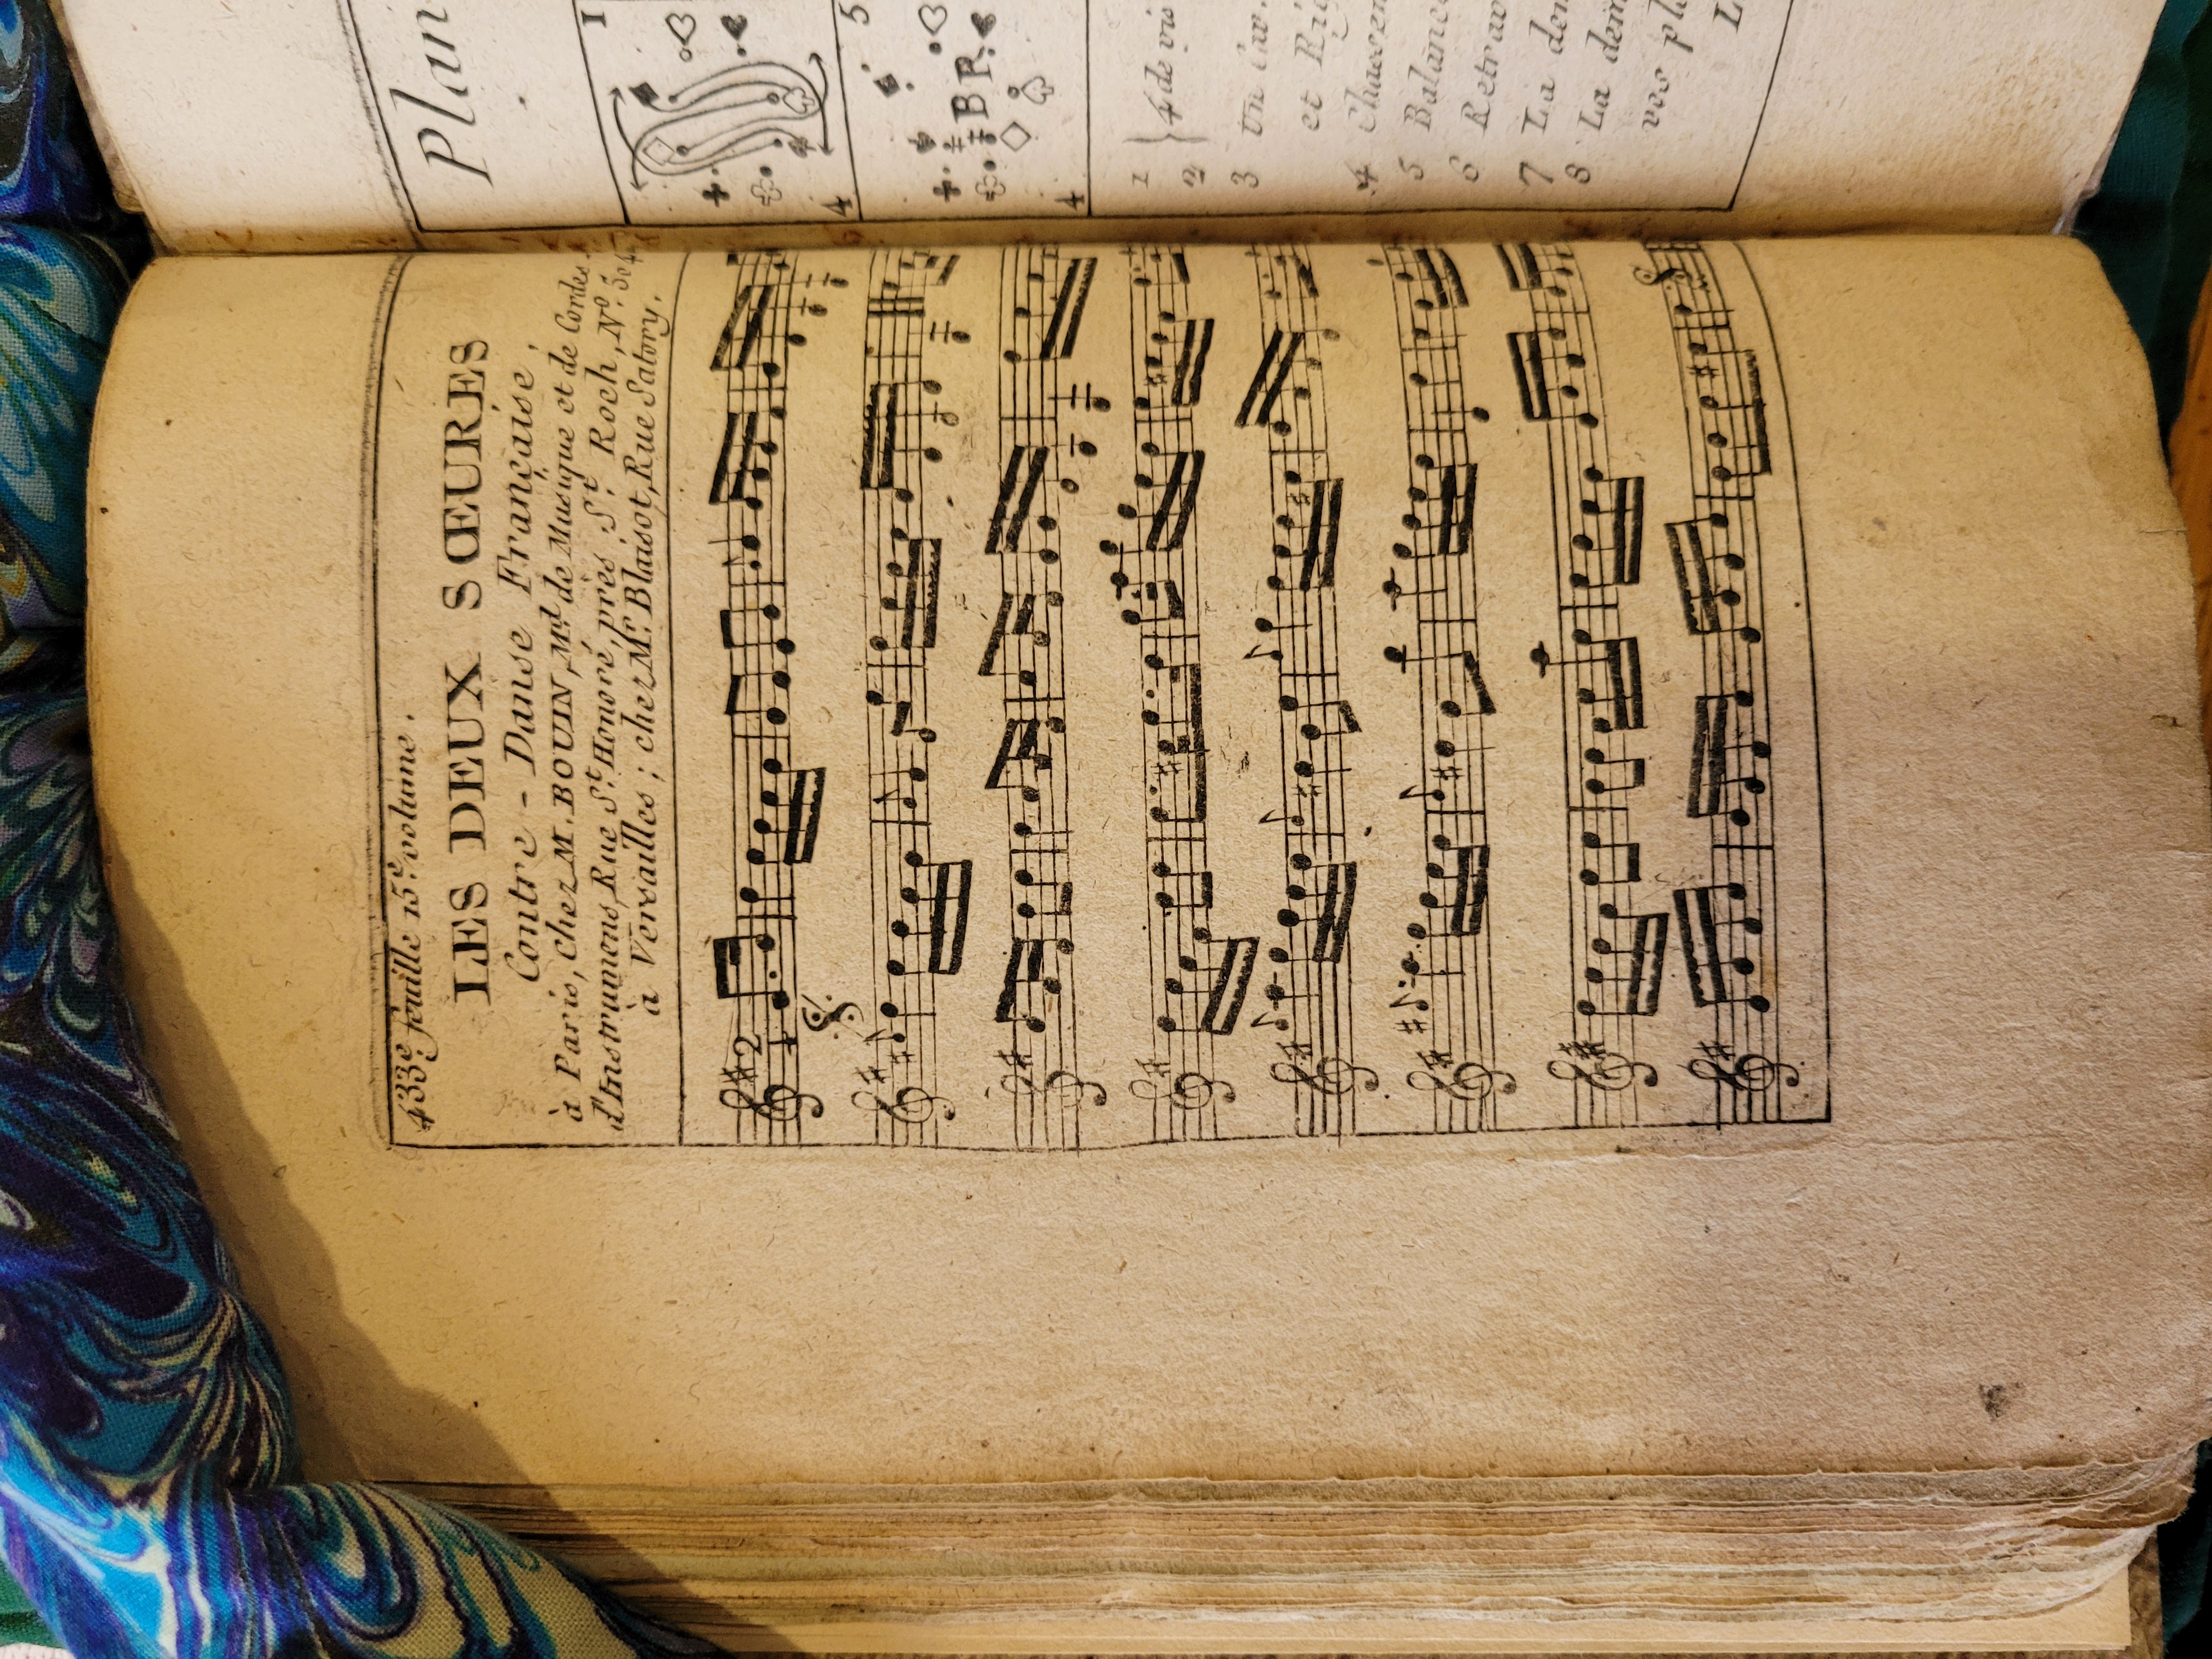 433e. feuille 15e. volume.
LES DEUX SŒURES
Contre-Danse Française,
à Paris, chez M. BOUIN, Md. de Musique et de Cordes
d'Instrumens, Rue St. Honoré, près St. Roch, No. 504
à Versailles; chez Mr. Blaisot, Rue Satory.
2
Plan
1
4
5
BR
4
1
2 } 4 de vis
3 Un
et
4
5 Balancé
6
7 La dem
8 La dem
vos pla
L